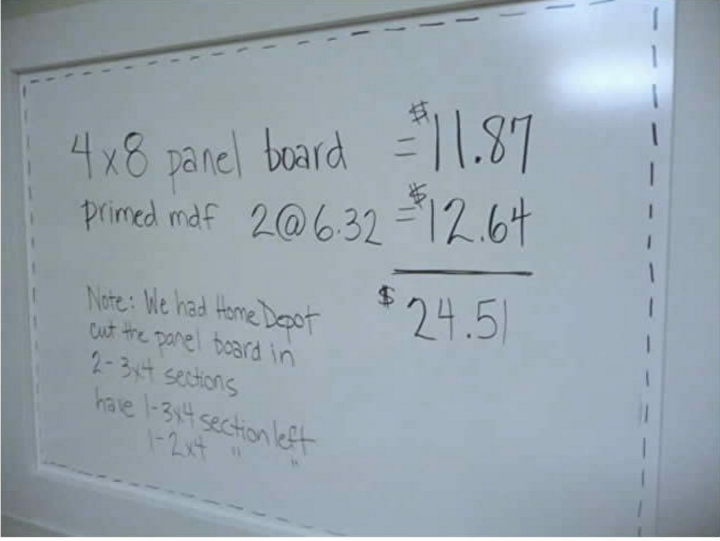 4x8 panel board = $11.87
primed mdf 2@6.32 = $12.64
$24.51
Note: We had Home Depot
cut the panel board in
2-3x4 sections
have 1-3x4 section left
1-2x4 " "